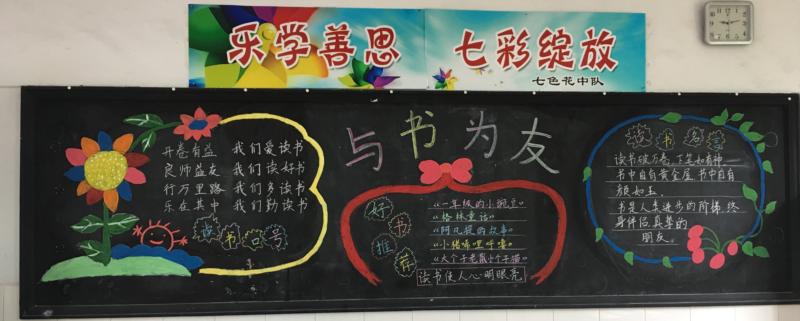 乐学善思 七彩绽放
七色花中队
与书为友
开卷有益 我们爱读书
良师益友 我们读好书
行万里路 我们多读书
乐在其中 我们勤读书
读书口号
好书推荐
《一年级的小豌豆》
《格林童话》
《阿凡提的故事》
《小猪唏哩呼噜》
《大个子老鼠小个子猫》
读书使人心明眼亮
读书名言
读书破万卷,下笔如有神
书中自有黄金屋,书中自有
颜如玉。
书是人类进步的阶梯,终
身伴侣,真挚的
朋友。